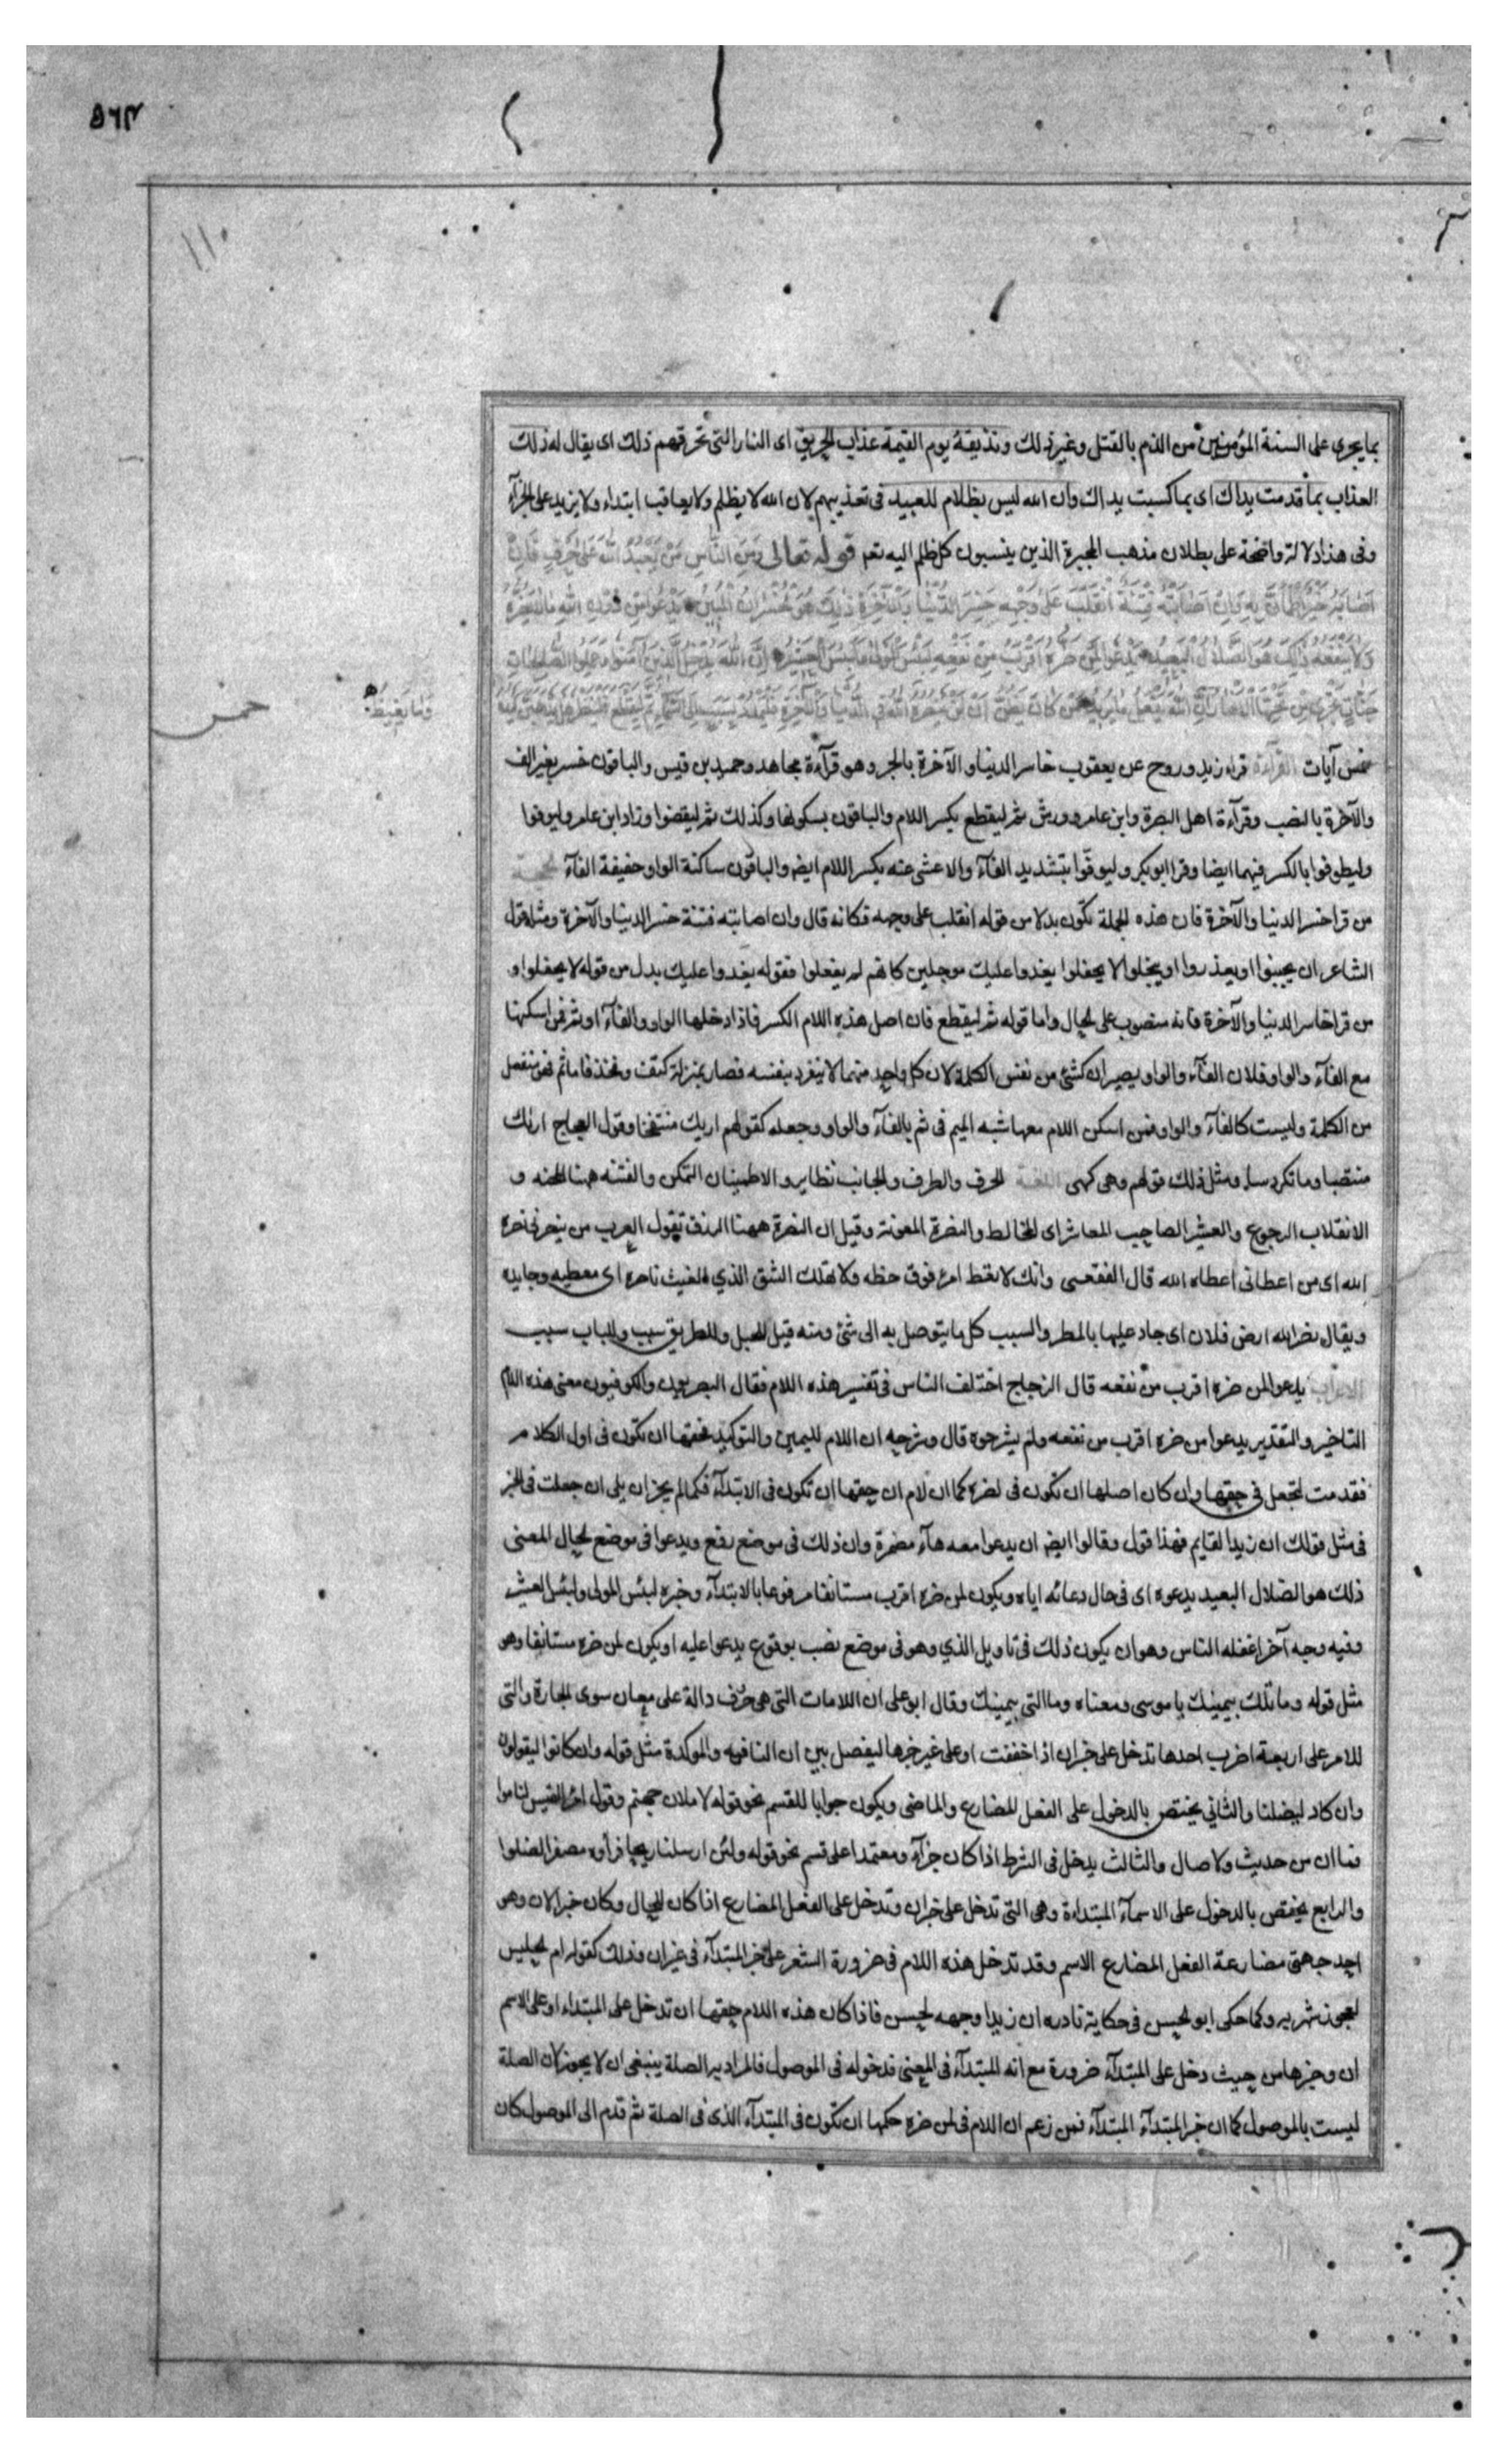 ٥٦٣
بما يجرى على السنة المؤمنين من الذم بالقتل وغير ذلك ونذيقه يوم القيمة عذاب الحريق اى النار التى تحرقهم ذلك اى يقال له ذلك
العذاب بما قدمت يداك اى بما كسبت يداك وان الله ليس بظلام للعبيد فى تعذيبهم لان الله لا يظلم ولا يعاقب ابتداء ولا يزيد على الجزآء
وفى هذا دلالة واضحة على بطلان مذهب المجبرة الذين ينسبون كل ظلم اليه تعم قوله تعالى وَمِنَ النَّاسِ مَنْ يَعْبُدُ اللهَ عَلى حَرْفٍ فَاِنْ
اَصَابَهُ خَيْرٌ اطْمَاَنَّ بِهِ وَاِنْ اَصَابَتْهُ فِتْنَةٌ انْقَلَبَ عَلى وَجْهِهِ خَسِرَ الدُّنْيَا وَالْآخِرَةَ ذلِكَ هُوَ الْخُسْرَانُ الْمُبِينُ يَدْعُوا مِنْ دُونِ اللهِ مَا لَا يَضُرُّهُ
وَمَا لَا يَنْفَعُهُ ذلِكَ هُوَ الضَّلَالُ الْبَعِيدُ يَدْعُوا لَمَنْ ضَرُّهُ اَقْرَبُ مِنْ نَفْعِهِ لَبِئْسَ الْمَوْلى وَلَبِئْسَ الْعَشِيرُ اِنَّ اللهَ يُدْخِلُ الَّذِينَ آمَنُوا وَعَمِلُوا الصَّالِحَاتِ
جَنَّاتٍ تَجْرِى مِنْ تَحْتِهَا الْاَنْهَارُ اِنَّ اللهَ يَفْعَلُ مَا يُرِيدُ مَنْ كَانَ يَظُنُّ اَنْ لَنْ يَنْصُرَهُ اللهُ فِى الدُّنْيَا وَالْآخِرَةِ فَلْيَمْدُدْ بِسَبَبٍ اِلَى السَّمَاءِ ثُمَّ لْيَقْطَعْ فَلْيَنْظُرْ هَلْ يُذْهِبَنَّ كَيْدُهُ
مَا يَغِيظُ
خمس
خمس آيات القرآءة قرا زيد وروح عن يعقوب خاسر الدنيا والآخرة بالجر وهو قرآءة مجاهد وحميد بن قيس والباقون خسر بغير الف
والآخرة بالنصب وقرآءة اهل البصرة وابن عامر وورش ثم ليقطع بكسر اللام والباقون بسكونها وكذلك ثم ليقضوا وزاد ابن عامر وليوفوا
وليطوفوا بالكسر فيهما ايضا وقرا ابو بكر وليوفّوا بتشديد الفآء والاعشى عنه بكسر اللام ايض والباقون ساكنة الواو خفيفة الفآء الحجة
من قرا خسر الدنيا والآخرة فان هذه الجملة تكون بدلا من قوله انقلب على وجهه فكانه قال وان اصابته فتنة خسر الدنيا والآخرة ومثله قول
الشاعر ان يجبنوا او يعذروا او يبخلوا لا يحفلوا يغدوا عليك مرجلين كانهم لم يفعلوا فقوله يغدوا عليك بدل من قوله لا يحفلوا و
من قرا خاسر الدنيا والآخرة فانه منصوب على الحال واما قوله ثم ليقطع فان اصل هذه اللام الكسر فاذا دخلها الواو والفآء او ثم فمن اسكنها
مع الفآء والواو فلان الفآء والواو يصيران كشئ من نفس الكلمة لان كل واحد منهما لا ينفرد بنفسه فصار بمنزلة كتف وفخذ فاما ثم فهو منفصل
من الكلمة وليست كالفآء والواو فمن اسكن اللام معها شبه الميم فى ثم بالفآء والواو وجعله كقولهم اريك منتفخا وقول العجاج اراك
منتصبا وما تكردسا ومثل ذلك قولهم وهى كهى اللغة الحرف والطرف والجانب نظاير والاطمينان التمكن والفتنة ههنا المحنه و
الانقلاب الرجوع والعشير الصاحب المعاشر اى المخالط والنصرة المعونة وقيل ان النصرة ههنا الرزق تقول العرب من ينصرنى نصره
الله اى من اعطانى اعطاه الله قال الفقعسى وانك لا تعط امرء فوق حظه ولا تملك الشق الذي الغيث ناصره اى معطيه وجايده
ويقال نصر الله ارض فلان اى جاد عليها بالمطر والسبب كل ما يتوصل به الى شئ ومنه قيل للحبل وللطريق سبب وللباب سبب
الاعراب يدعوا لمن ضره اقرب من نفعه قال الزجاج اختلف الناس فى تفسير هذه اللام فقال البصريون والكوفيون معنى هذه اللام
التاخير والتقدير يدعوا من ضره اقرب من نفعه ولم يشرحوه قال وشرحه ان اللام لليمين والتوكيد فحقها ان تكون فى اول الكلام
فقدمت لتجعل فى حقها وان كان اصلها ان تكون فى لضره كما ان لام ان حقها ان تكون فى الابتدآء فكما لم يجز ان يلى ان جعلت فى الخبر
فى مثل قولك ان زيدا لقايم فهذا قول وقالوا ايض ان يدعوا معه هآء مضمرة وان ذلك فى موضع رفع ويدعوا فى موضع الحال المعنى
ذلك هو الضلال البعيد يدعوه اى فى حال دعائه اياه ويكون لمن ضره اقرب مستانفا مرفوعا بالابتدآء وخبره لبئس المولى ولبئس العشير
وفيه وجه آخر اغفله الناس وهو ان يكون ذلك فى تاويل الذي وهو فى موضع نصب بوقوع يدعوا عليه او يكون لمن ضره مستانفا وهو
مثل قوله وما تلك بيمينك يا موسى ومعناه وما التى بيمينك وقال ابو على ان اللامات التى هى حرف دالة على معان سوى الجارة والتى
للامر على اربعة اضرب احدها تدخل على خبر ان اذا خففت او على غير خبرها ليفصل بين ان النافيه والموكدة مثل قوله وان كانوا ليقولون
وان كاد ليضلنا والثانى يختص بالدخول على الفعل للمضارع والماضى ويكون جوابا للقسم نحو قوله لاملان جهنم وقول امرء القيس لناموا
فما ان من حديث ولا صال والثالث يدخل فى الشرط اذا كان جزآء ومعتمدا على قسم نحو قوله ولئن ارسلنا ريحا فراوه مصفرا لضلوا
والرابع يختص بالدخول على الاسمآء المبتداة وهى التى تدخل على خبر ان وتدخل على الفعل المضارع اذا كان للحال وكان خبرا لان وهو
احد جهتى مضارعة الفعل المضارع الاسم وقد تدخل هذه اللام فى ضرورة الشعر على خبر المبتدآء فى غير ان وذلك كقوله ام الحليس
لعجوز شهربه وكما حكى ابو الحسن فى حكاية نادره ان زيدا وجهه لحسن فاذا كان هذه اللام حقها ان تدخل على المبتداء او على الاسم
ان وخبرها من حيث دخل على المبتدآء ضرورة مع انه المبتدآء فى المعنى فدخوله فى الموصول فالمراد به الصلة ينبغى ان لا يجوز لان الصلة
ليست بالموصول كما ان خبر المبتدآء المبتدآء فمن زعم ان اللام فى لمن ضره حكمها ان تكون فى المبتدآء الذى فى الصلة ثم قدم الى الموصول كان